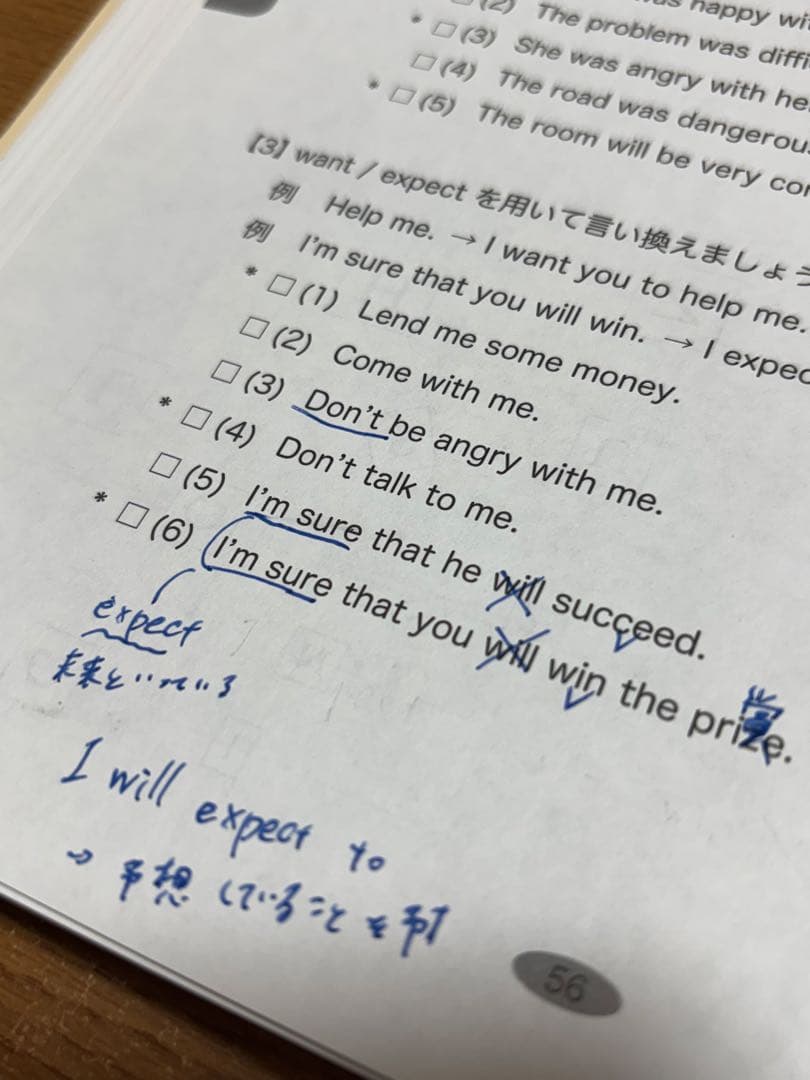 (2) The problem was
*□(3) She was angry with
□(4) The road was
*□(5) The room will be very
【3】 want / expect を用いて言い換えましょう
例 Help me. → I want you to help me.
例 I'm sure that you will win. → I
*□(1) Lend me some money.
□(2) Come with me.
□(3) Don't be angry with me.
*□(4) Don't talk to me.
□(5) I'm sure that he will succeed.
*□(6) I'm sure that you will win the prize.
賞
expect
未来といっている
I will expect to
→ 予想していることを予
56